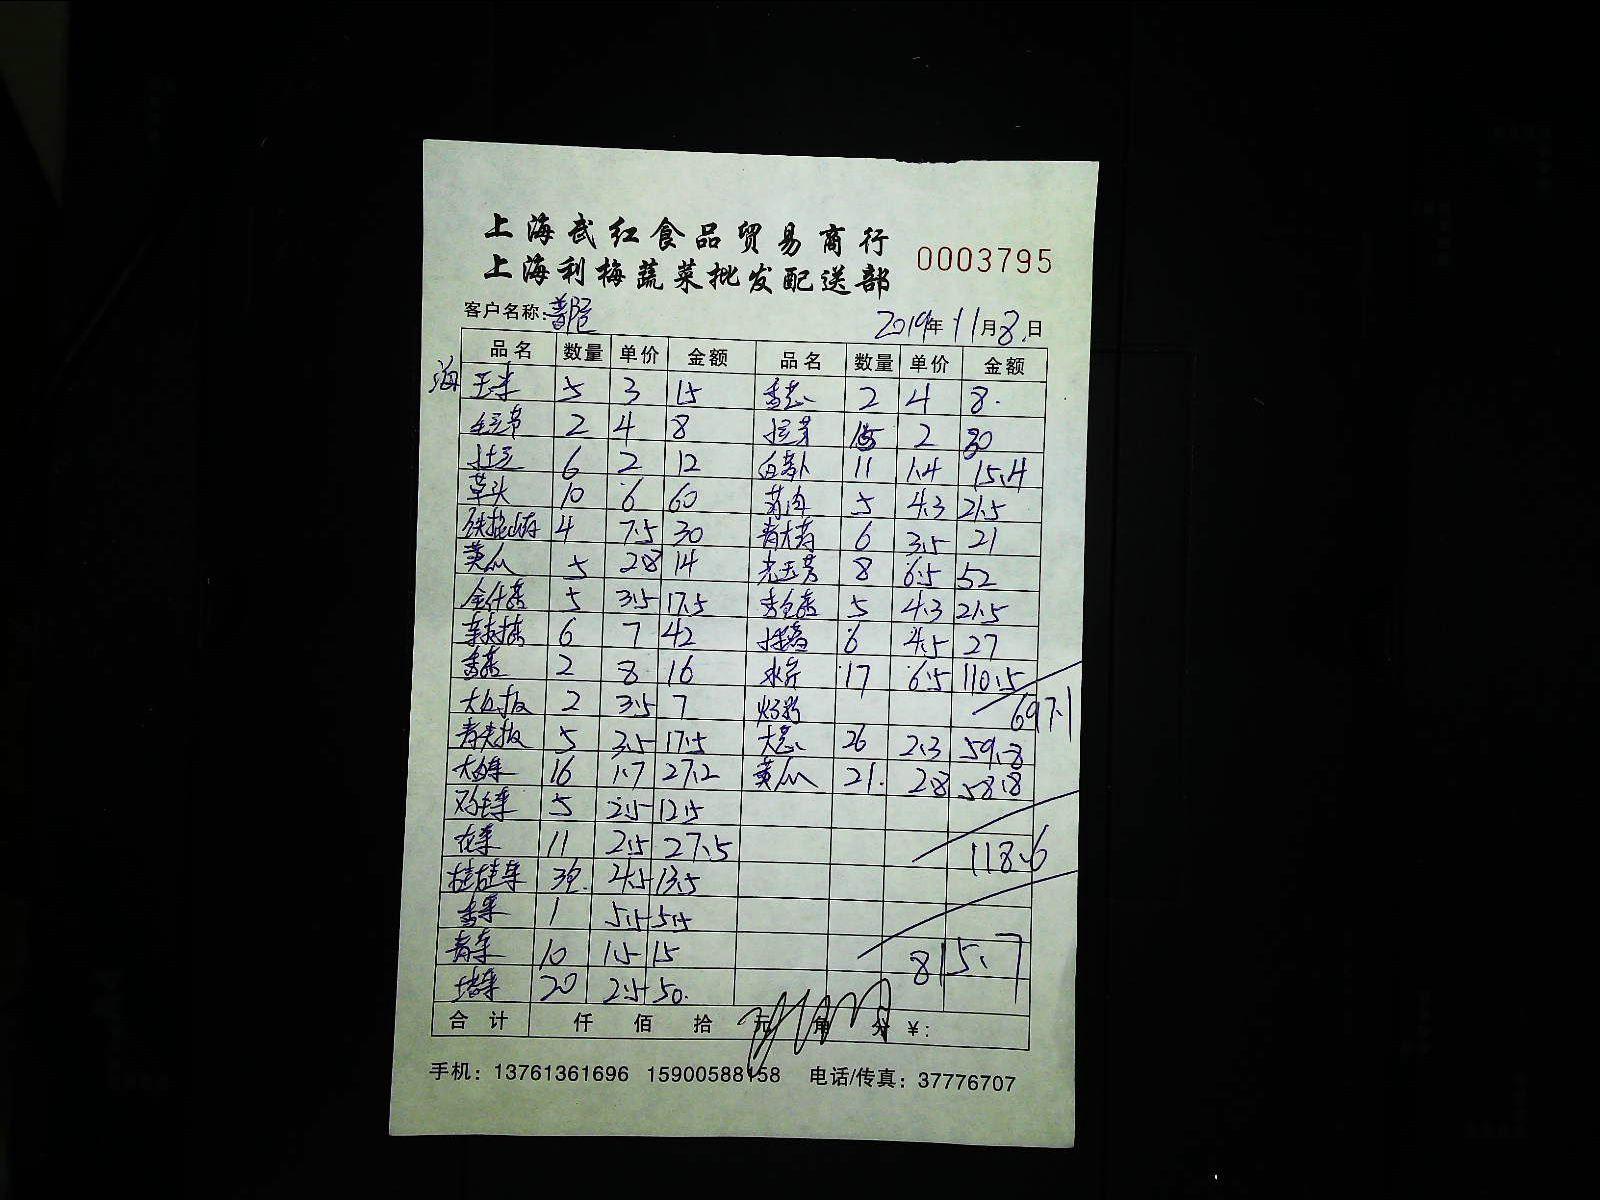 上海武红食品贸易商行
上海利梅蔬菜批发配送部
0003795
客户名称:
2019年11月8日
品名 数量 单价 金额 品名 数量 单价 金额
海 玉米 5 3 15 香葱 2 4 8.
2 4 8 15 2 30
土豆 6 2 12 白萝卜 11 1.4 15.4
草头 10 6 60 5 4.3 21.5
铁棍山药 4 7.5 30 6 3.5 21
黄瓜 5 2.8 14 8 6.5 52
金针菇 5 3.5 17.5 5 4.3 21.5
6 7 42 6 4.5 27
香菇 2 8 16 水芹 17 6.5 110.5
2 3.5 7
697.1
青尖椒 5 3.5 17.5 大葱 26 2.3 59.8
大白菜 16 1.7 27.2 黄瓜 21. 2.8 58.8
鸡毛菜 5 2.5 12.5
花菜 11 2.5 27.5
118.6
4.5 13.5
香菜 1 5.5 5.5
青菜 10 1.5 15
815.7
20 2.5 50.
合计 仟 佰 拾 元 角 分 ¥:
手机: 13761361696 15900588158 电话/传真: 37776707